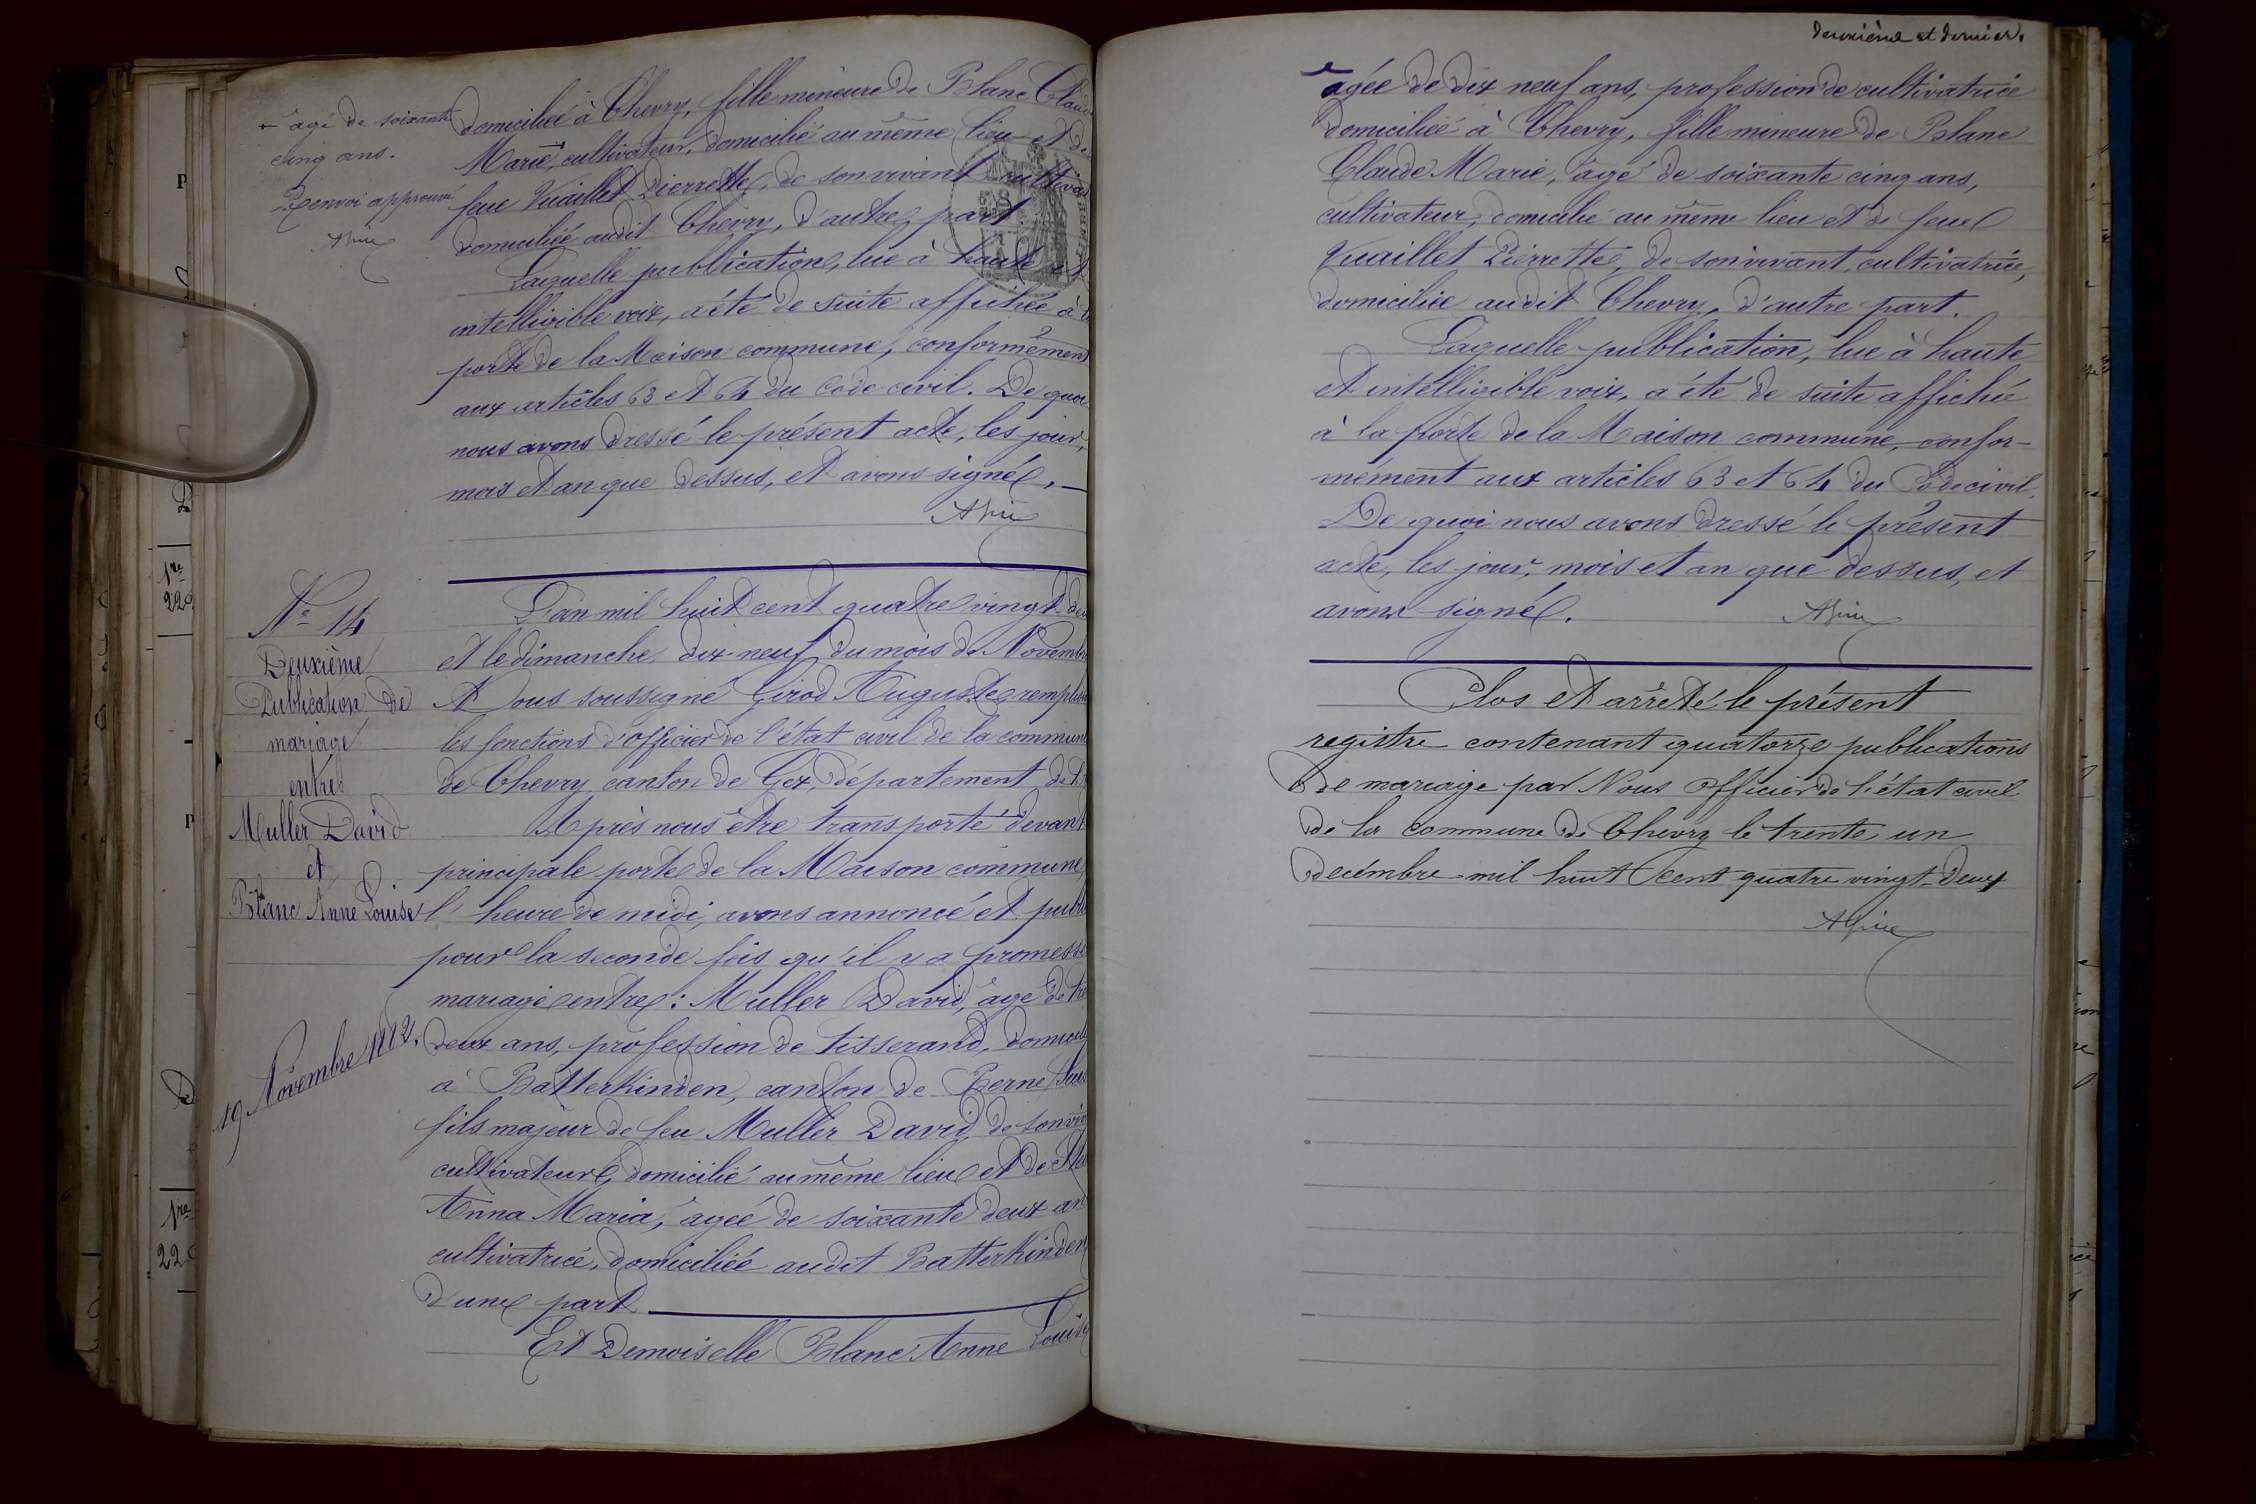 + âgé de soixante
cinq ans.
Renvoi approuvé
domiciliée à Chevry, fille mineure de Blanc Claude
Marie, + cultivateur, domicilié au même lieu et de
feue Vuaillet Pierrette, de son vivant cultiva
domiciliée audit Chevry, d'autre part.
Laquelle publication, lue à haute et
intelligible voix, a été de suite affichée à la
porte de la Maison commune, conformément
aux articles 63 et 64 du Code civil. De quoi
nous avons dressé le présent acte, les jour,
mois et an que dessus, et avons signé.
N° 14
Deuxième
Publication de
mariage
entre
Muller David
et
Blanc Anne Louise
19 Novembre 1882.
L'an mil huit cent quatre vingt deu
et le dimanche dix-neuf du mois de Novembre
Nous soussigné Girod Auguste remplissa
les fonctions d'officier de l'état civil de la commune
de Chevry canton de Gex, département de l'
Après nous être transporté devant
principale porte de la Maison commune,
l'heure de midi, avons annoncé et publi
pour la seconde fois qu'il y a promesse
mariage entre : Muller David, âgé de tre
deux ans, profession de tisserand, domicili
à Batterkinden, canton de Berne Suis
fils majeur de feu Muller David, de son viv
cultivateur, domicilié au même lieu et de
Anna Maria, âgée de soixante deux an
cultivatrice, domiciliée audit Batterkinden
d'une part
Et Demoiselle Blanc Anne Louise
deuxième et dernier.
âgée de dix neuf ans, profession de cultivatrice
domiciliée à Chevry, fille mineure de Blanc
Claude Marie, âgé de soixante cinq ans,
cultivateur, domicilié au même lieu et de feue
Vuaillet Pierrette, de son vivant, cultivatrice,
domiciliée audit Chevry, d'autre part.
Laquelle publication, lue à haute
et intelligible voix, a été de suite affichée
à la porte de la Maison commune, confor-
mément aux articles 63 et 64 du Code civil.
De quoi nous avons dressé le présent
acte, les jour, mois et an que dessus, et
avons signé.
Clos et arrêté le présent
registre contenant quatorze publications
de mariage par Nous Officier de l'état civil
de la commune de Chevry le trente un
décembre mil huit cent quatre vingt-deux